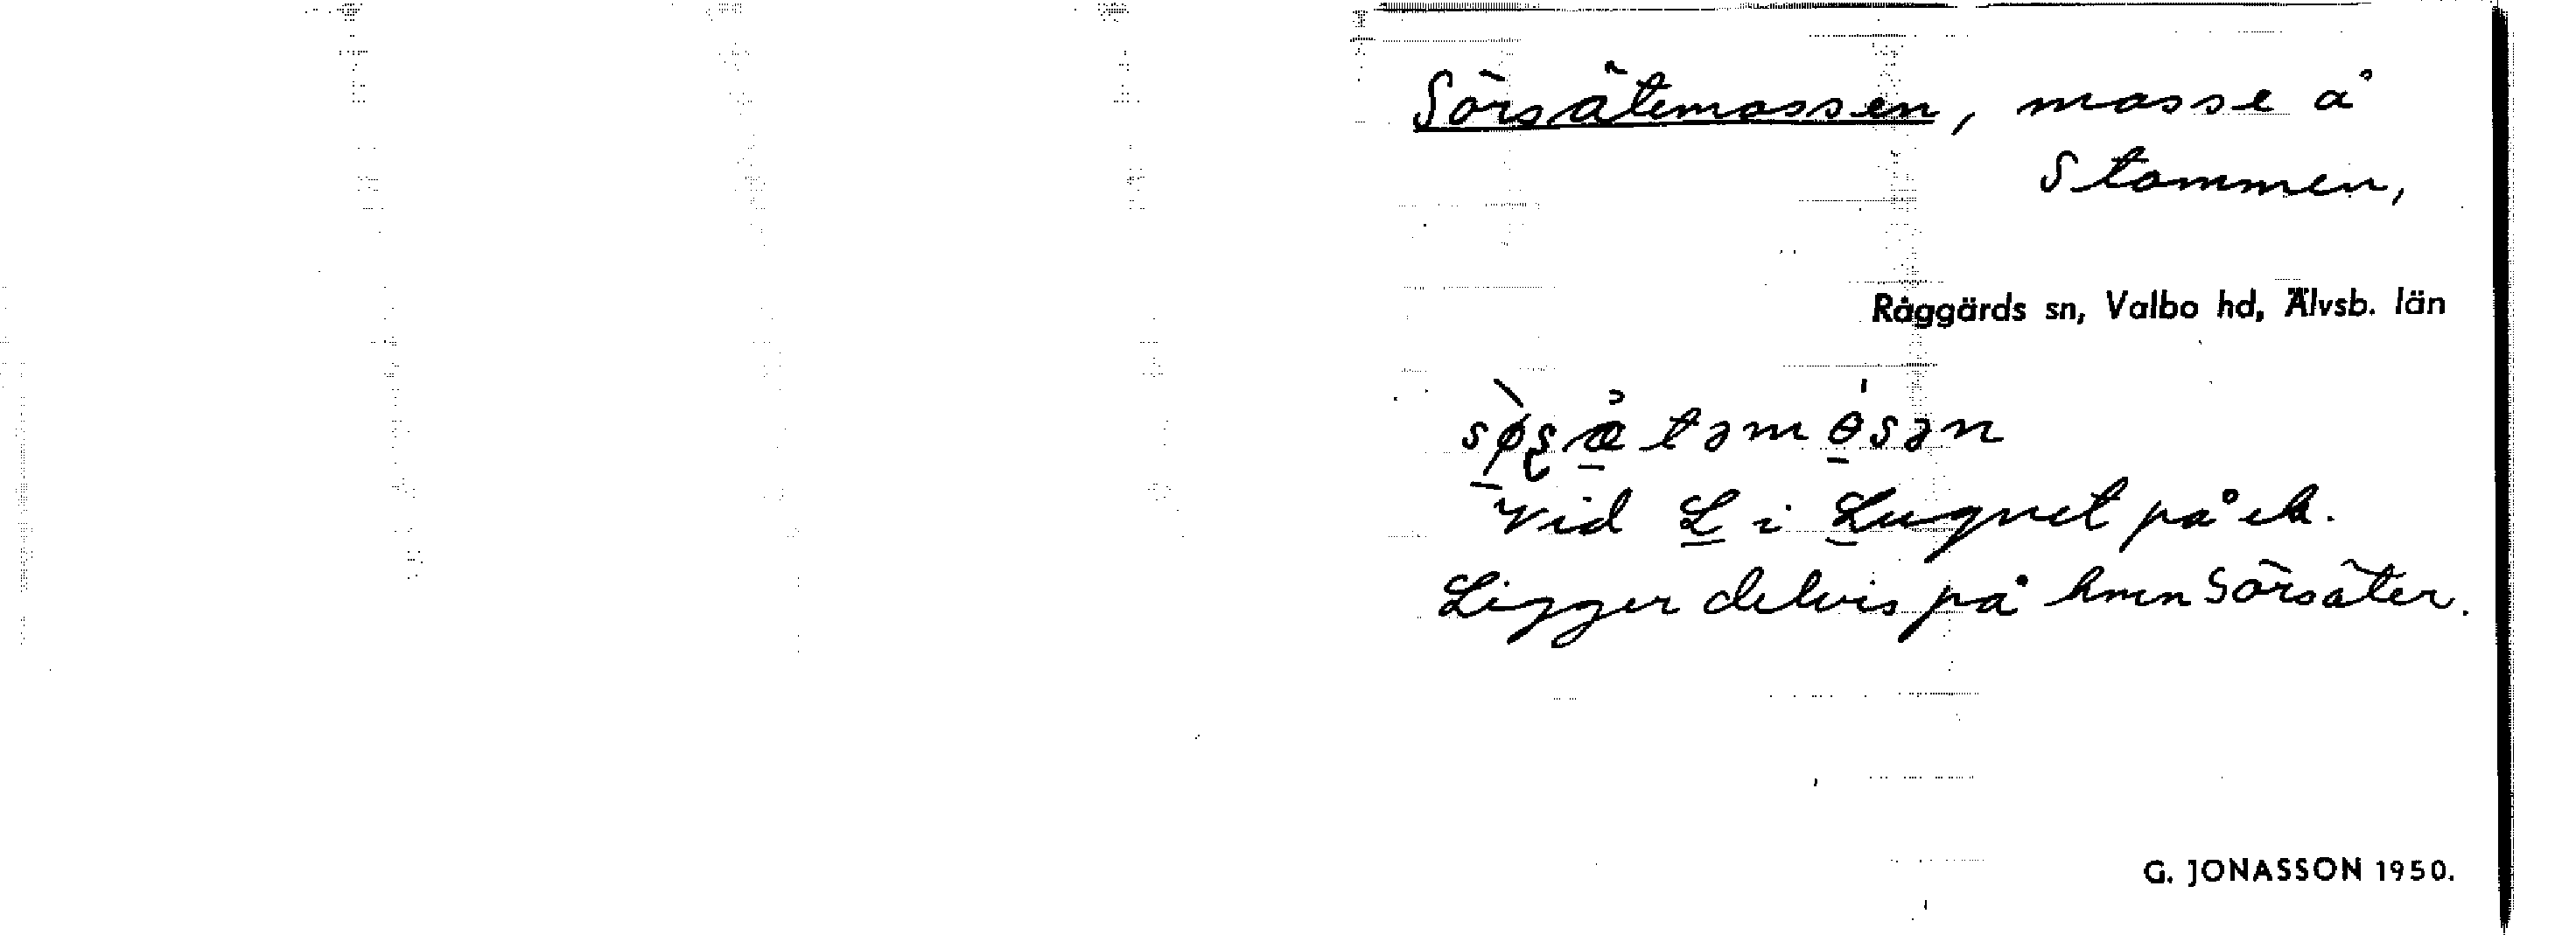 Sörsätemossen, mosse å
Stommen,
Råggärds sn, Valbo hd, Älvsb. län
Vid L i Lugnet på ek.
Ligger delvis på hmn Sörsäter.
G. JONASSON 1950.